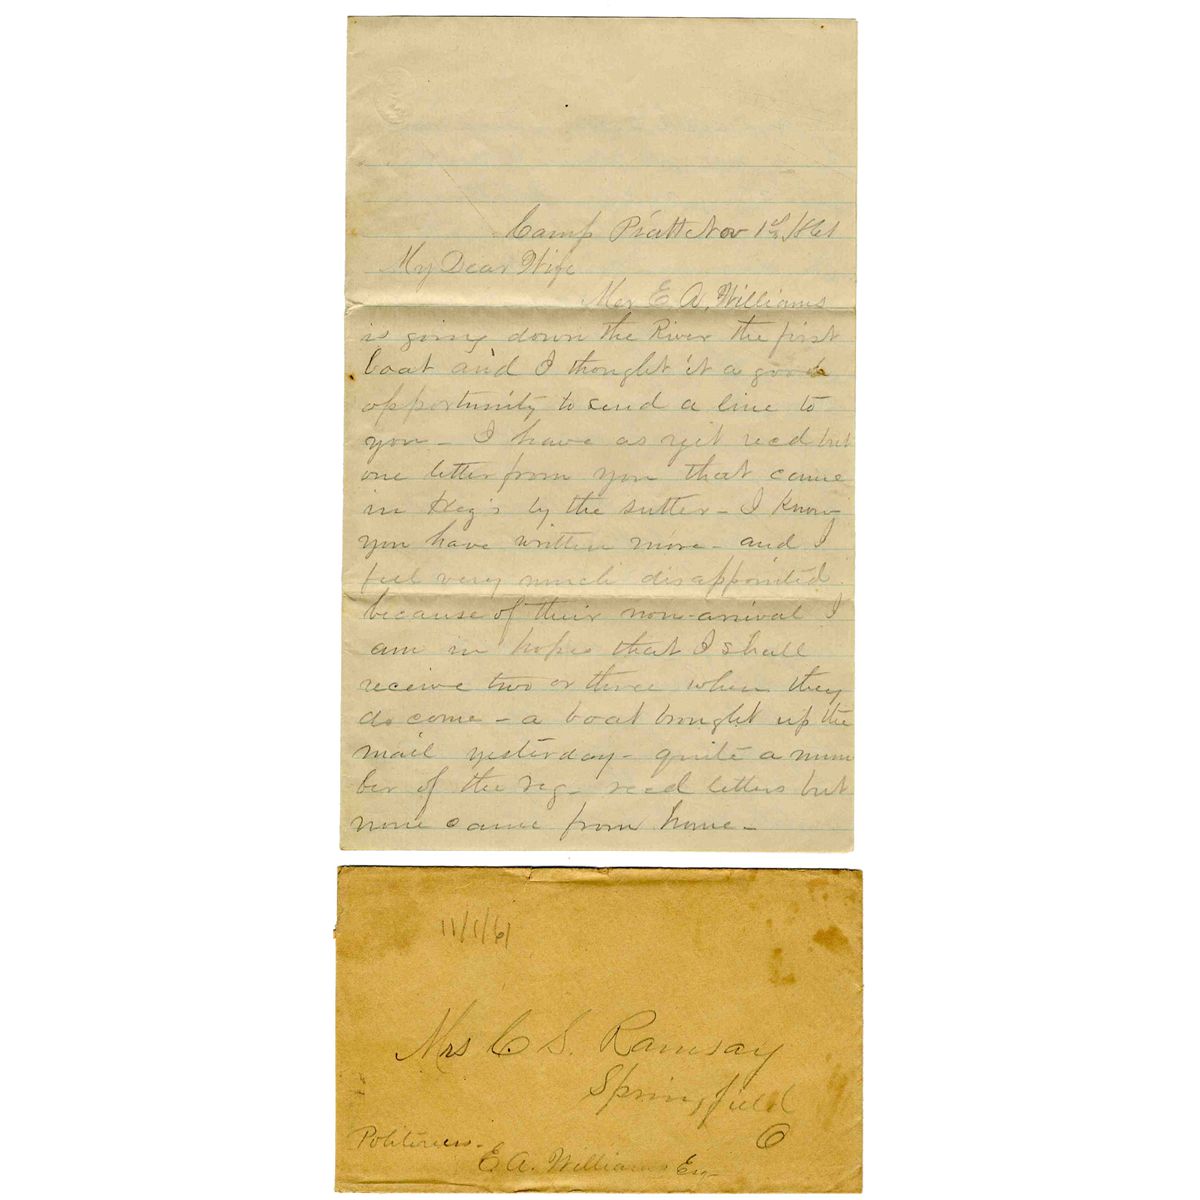 Camp Piatt Nov 1st 1861
My Dear Wife
Mr E A. Williams
is going down the River the first
boat and I thought it a good
opportunity to send a line to
you - I have as yet recd but
one letter from you that came
in by the sutler - I know
you have written more - and I
feel very much disappointed
because of their non-arrival I
am in hopes that I shall
receive two or three when they
do come - a boat brought up the
mail yesterday - quite a num
ber of the reg - recd letters but
none came from home -
11/1/61
Mrs C. S. Ramsay
Springfield
O
Politeness -
E A. Williams Esq